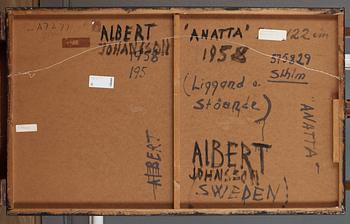 ALBERT
JOHANSSON
1958
195
ALBERT
"ANATTA"
1958
(Liggand o.
Stående)
ALBERT
JOHNSSON
(SWEDEN)
122 cm
375829
Sthlm
"ANATTA"